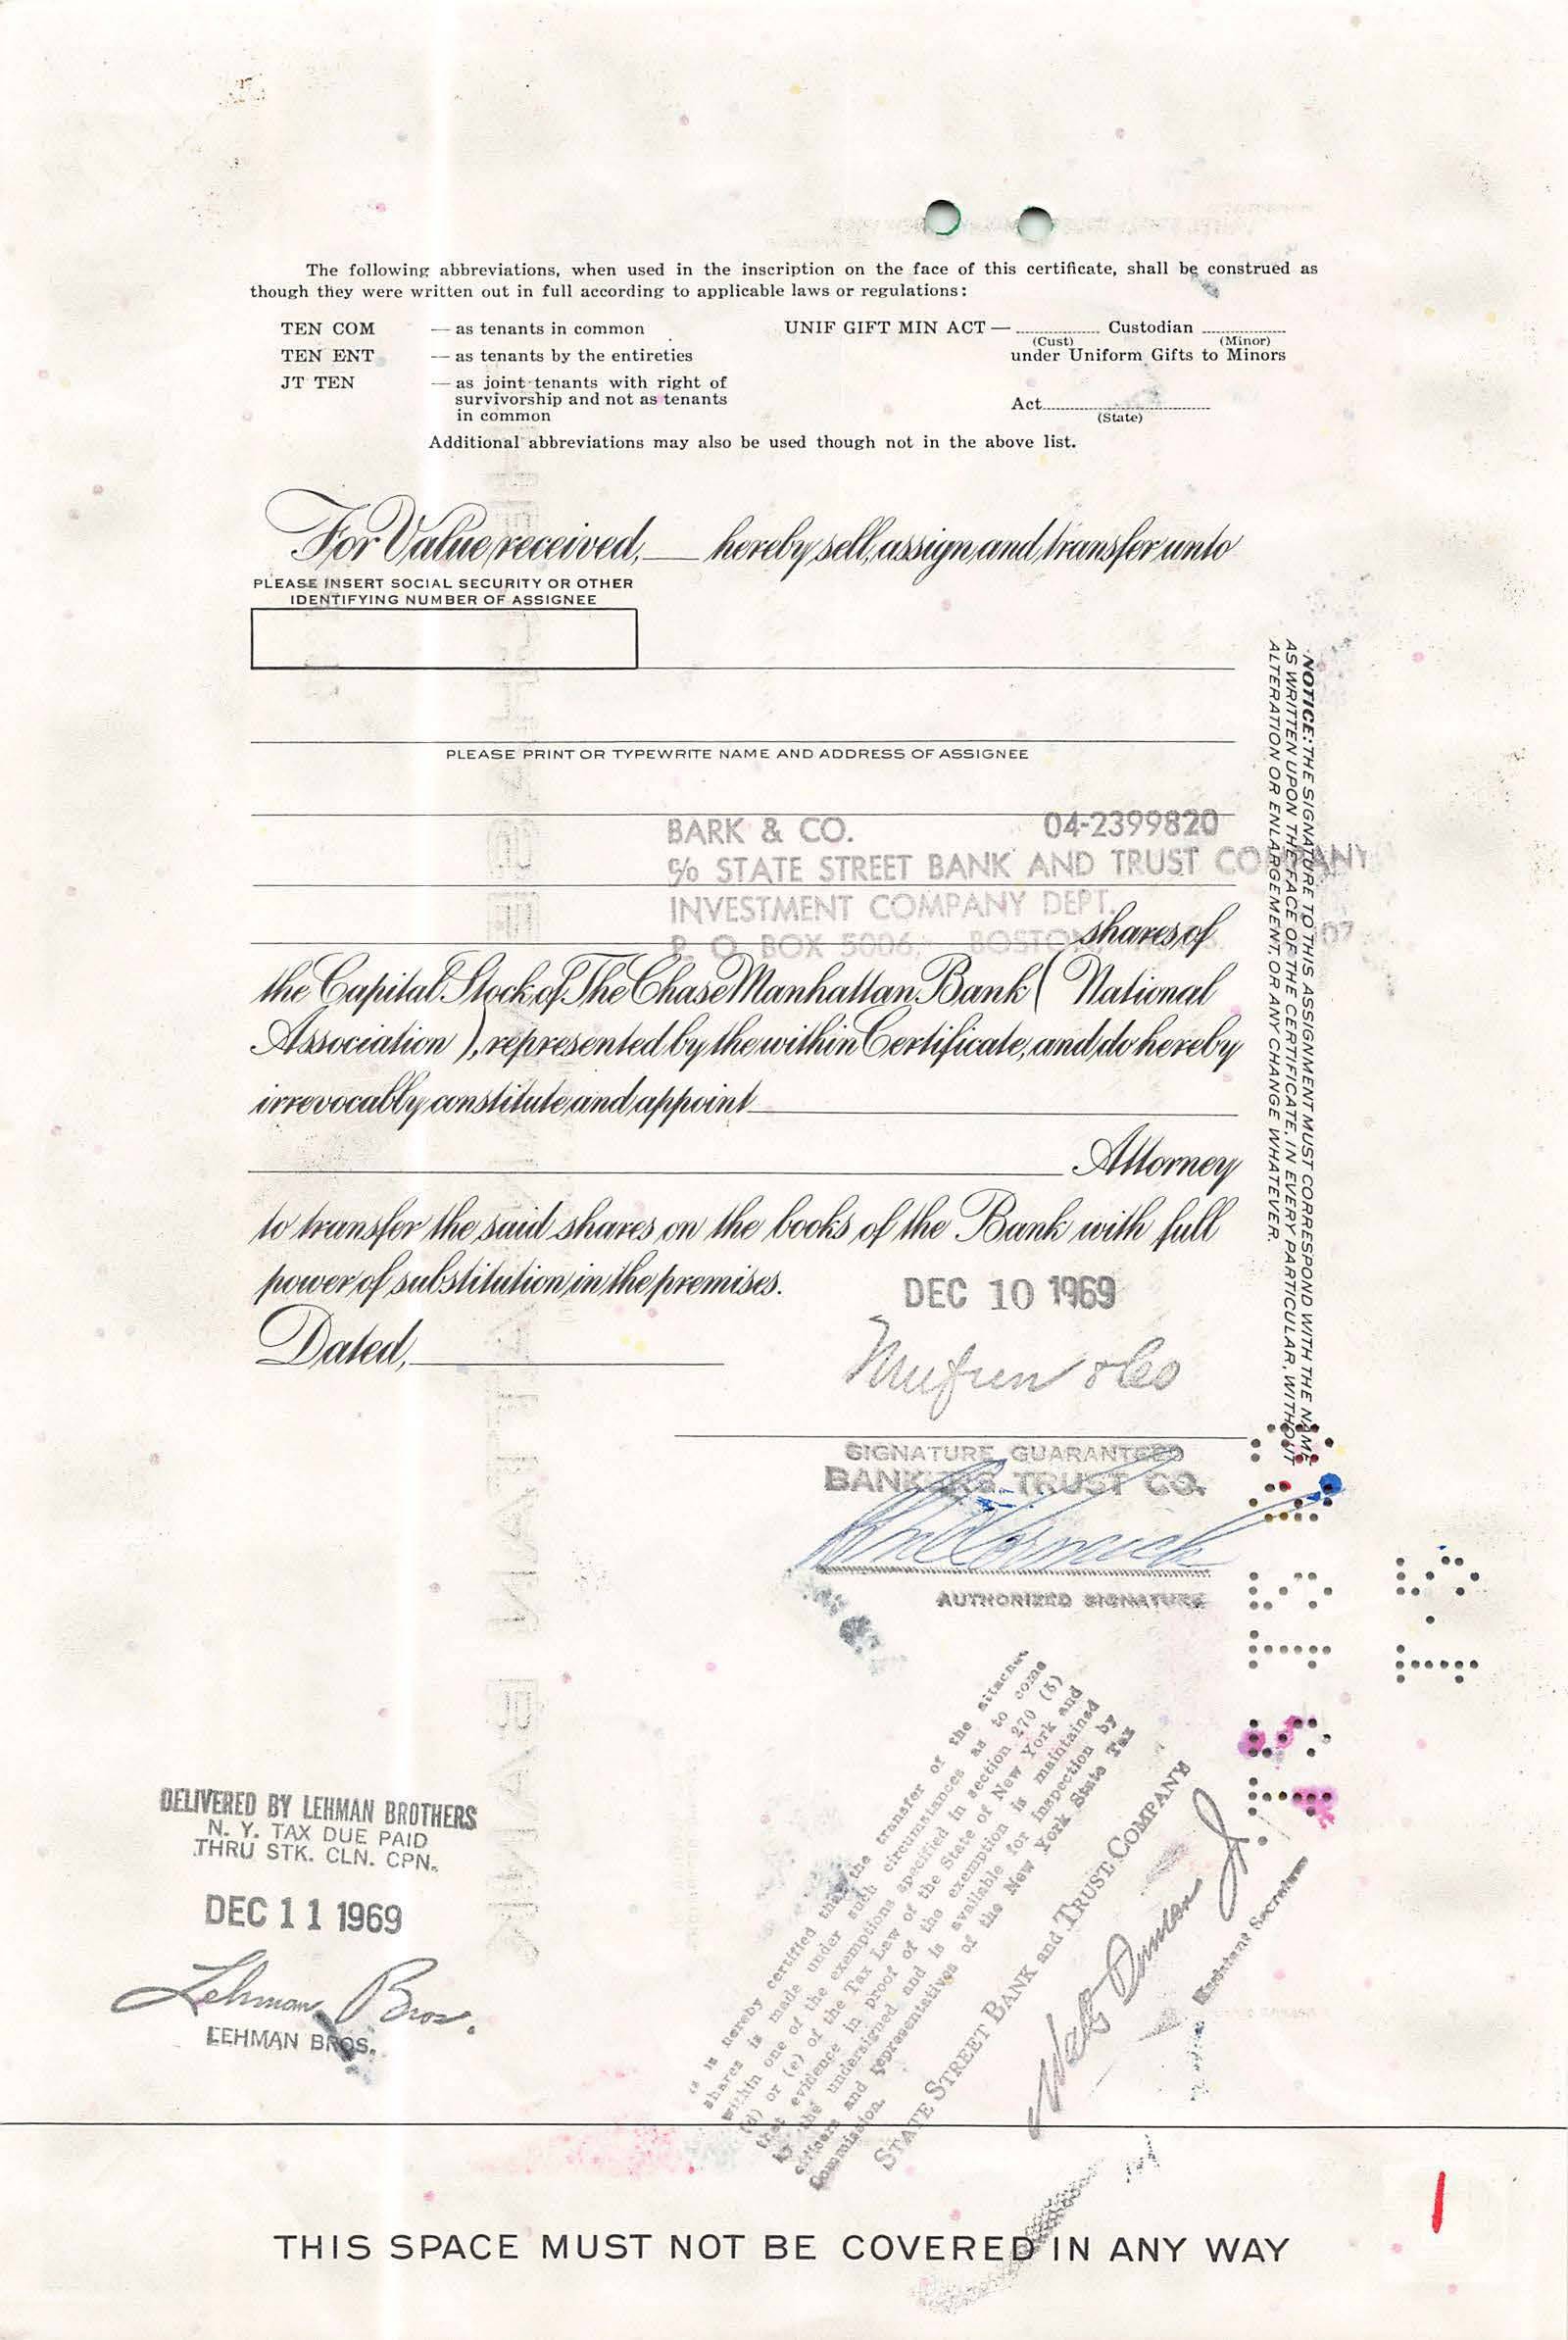 The following abbreviations, when used in the inscription on the face of this certificate, shall be construed as
though they were written out in full according to applicable laws or regulations:
TEN COM — as tenants in common
TEN ENT — as tenants by the entireties
JT TEN — as joint tenants with right of
survivorship and not as tenants
in common
UNIF GIFT MIN ACT — Custodian
(Cust) (Minor)
under Uniform Gifts to Minors
Act
(State)
Additional abbreviations may also be used though not in the above list.
For Value received, hereby sell, assign and transfer unto
PLEASE INSERT SOCIAL SECURITY OR OTHER
IDENTIFYING NUMBER OF ASSIGNEE
PLEASE PRINT OR TYPEWRITE NAME AND ADDRESS OF ASSIGNEE
BARK & CO. 04-2399820
c/o STATE STREET BANK AND TRUST COMPANY
INVESTMENT COMPANY DEPT.
P. O. BOX 5006, BOSTON
shares of
the Capital Stock of The Chase Manhattan Bank (National
Association), represented by the within Certificate, and do hereby
irrevocably constitute and appoint
Attorney
to transfer the said shares on the books of the Bank with full
power of substitution in the premises.
Dated,
DEC 10 1969
& Co
SIGNATURE GUARANTEED
BANKERS TRUST CO.
AUTHORIZED SIGNATURE
NOTICE: THE SIGNATURE TO THIS ASSIGNMENT MUST CORRESPOND WITH THE NAME
AS WRITTEN UPON THE FACE OF THE CERTIFICATE, IN EVERY PARTICULAR, WITHOUT
ALTERATION OR ENLARGEMENT, OR ANY CHANGE WHATEVER.
DELIVERED BY LEHMAN BROTHERS
N. Y. TAX DUE PAID
THRU STK. CLN. CPN.
DEC 11 1969
Lehman Bros.
LEHMAN BROS.
is hereby certified that the transfer of the
shares is made under such circumstances as to come
within one of the exemptions specified in section 270 (5)
(d) or (e) of the Tax Law of the State of New York and
that evidence in proof of the exemption is maintained
by the undersigned and is available for inspection by
officers and representatives of the New York State Tax
Commission.
STATE STREET BANK and TRUST COMPANY
Assistant Secretary
THIS SPACE MUST NOT BE COVERED IN ANY WAY